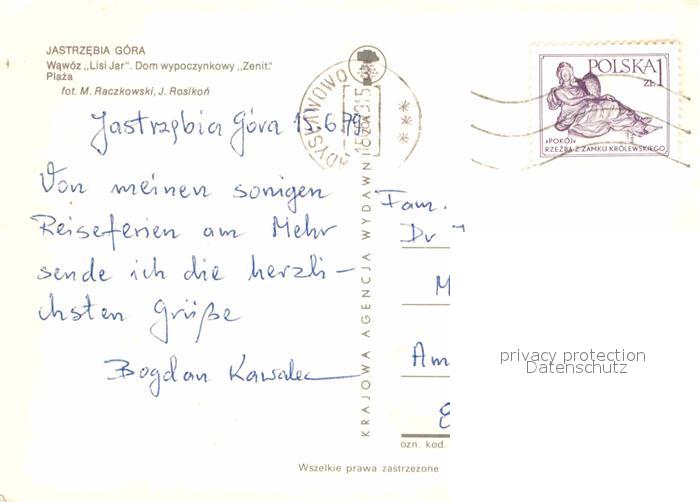 JASTRZĘBIA GÓRA
Wąwóz „Lisi Jar". Dom wypoczynkowy „Zenit."
Plaża
fot. M. Raczkowski, J. Rosikoń
Jastrzębia Góra 15.6.79
Von meinen sonigen
Reiseferien am Mehr
sende ich die herzli-
chsten Grüße
Bogdan Kawalec
KRAJOWA AGENCJA WYDAWNICZA
POLSKA 1
ZŁ
»POKÓJ«
RZEŹBA Z ZAMKU KRÓLEWSKIEGO
Fam.
Dr
M
Am
ozn. kod.
Wszelkie prawa zastrzeżone
privacy protection
Datenschutz